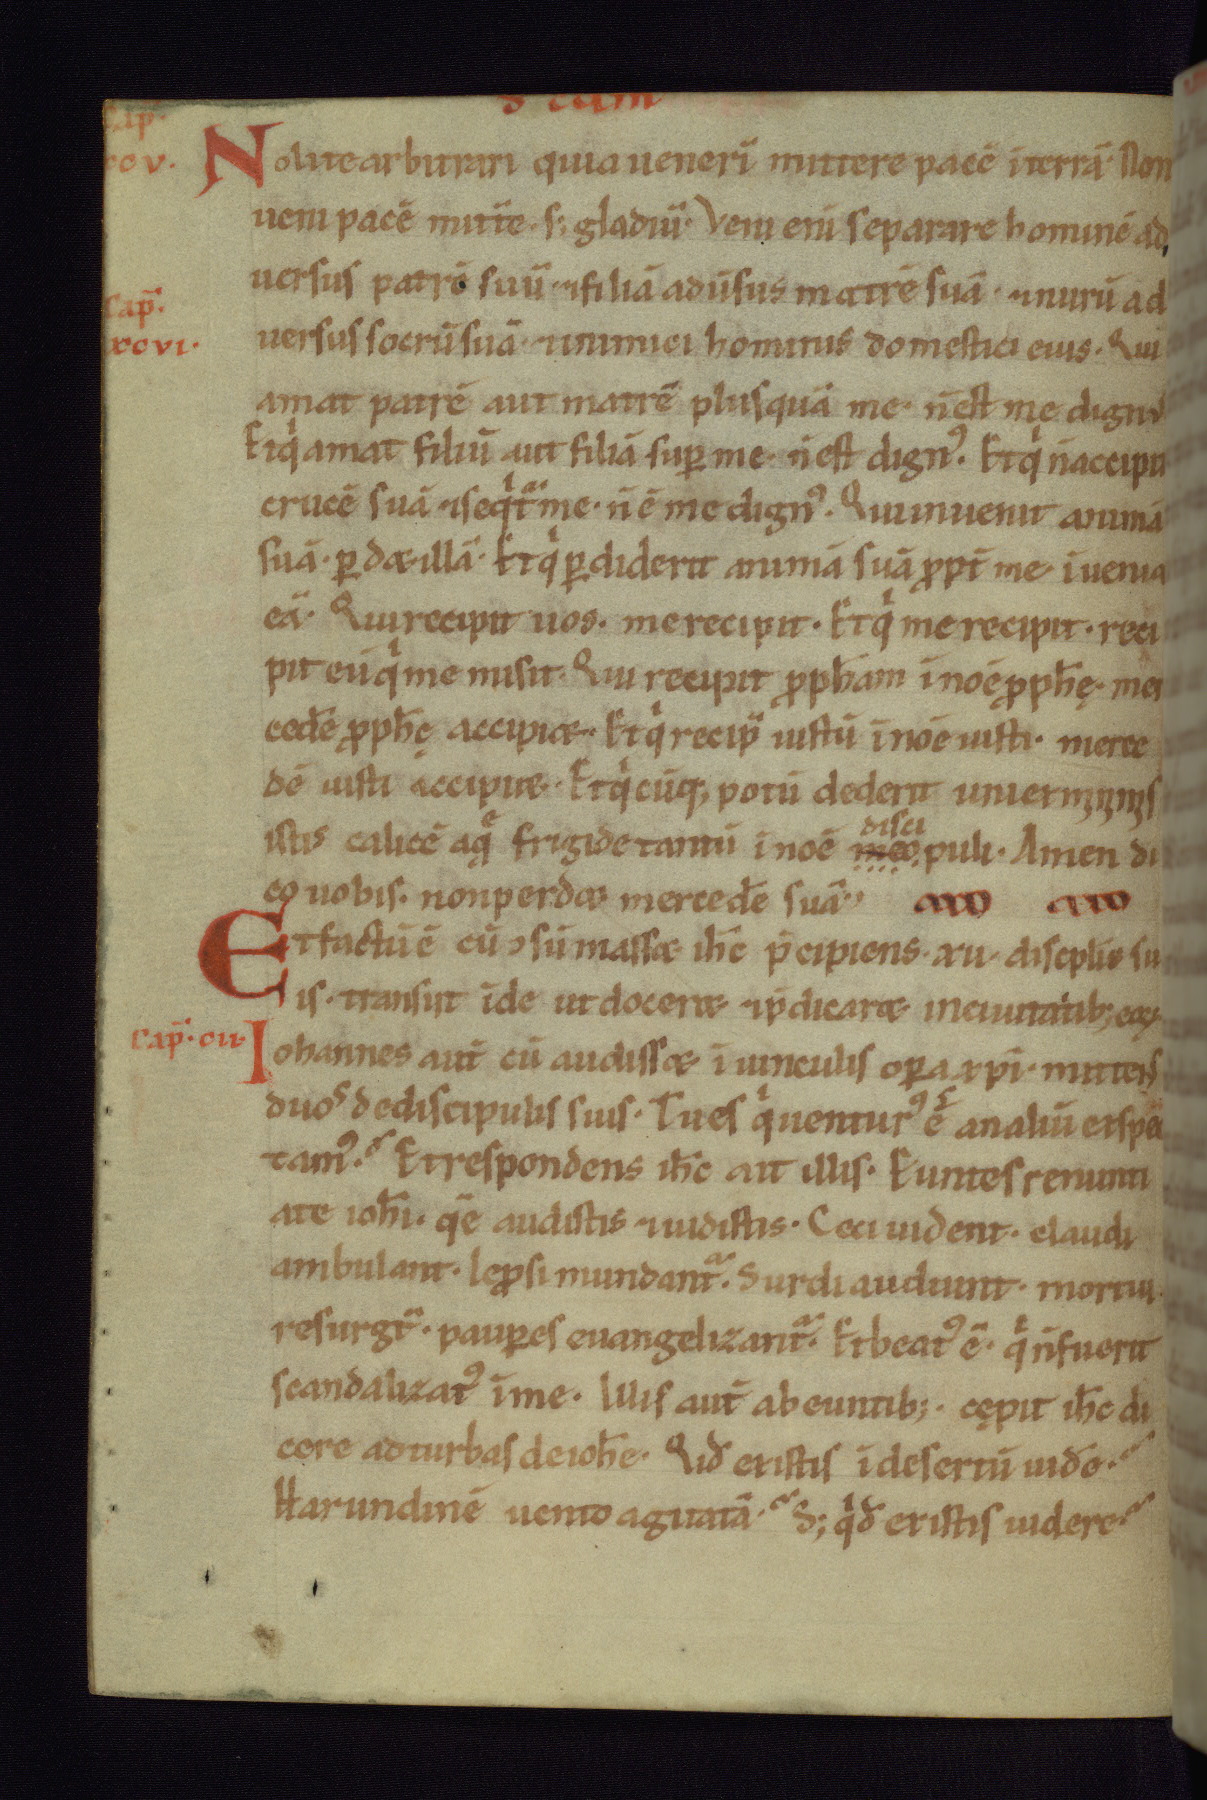 S cdm
Cap.
xcv.
Nolite arbitrari quia uenerī mittere pacē ī terrā. Non
ueni pacē mittē. s; gladiū. Veni enī separare hominē ad
uersus patrē suū. ⁊ filiā adūsus matrē suā. ⁊ nurū ad
Cap̄.
xcvi.
uersus socrū suā. ⁊ inimici hominis domestici eius. Qui
amat patrē aut matrē plusquā me. n̄ est me dignꝰ
Et qͥ amat filiū aut filiā suꝑ me. n̄ est dignꝰ. Et qͥ n̄ accipit
crucē suā ⁊ seqͥt᷑ me. n̄ ē me dignꝰ. Qui inuenit animā
suā. ꝑdæ illā. Et qͥ ꝑdiderit animā suā ꝓpt̄ me. īuenia
eā. Qui recipit uos. me recipit. Et qͥ me recipit. reci
pit eū qͥ me misit. Qui recipit ꝓph̄am ī noē ꝓph̄ę. mer
cedē ꝓph̄ę accipiæ. Et qͥ recip̄ iustū ī noē iusti. merce
dē iusti accipiæ. Et qͥcūq; potū dederit uni et minimis
istis calicē aqͣ frigide tantū ī noē meo disci puli. Amen di
co uobis. non perdæ mercedē suā.
Et factū ē cū ꝯsūmassæ ih̄c p̄cipiens. xii. discipłis su
is. transiit īde ut doceræ ⁊ p̄dicaræ in ciuitatib; eoꝝ.
Cap̄. cii.
Iohannes aut̄ cū audissæ ī uinculis oꝑa xp̄i. mittens
duos de discipulis suis. Tu es qͥ uenturꝰ ē an aliū exspec
tamꝰ. Et respondens ih̄c ait illis. Euntes renunti
ate ioh̄i. quē audistis ⁊ uidistis. Ceci uident. claudi
ambulant. lepͦsi mundant᷑. Surdi audiunt. mortui
resurgt̄. pauꝑes euangelizant᷑. Et beatꝰ ē. qͥ n̄ fuerit
scandalizatꝰ ī me. Illis aut̄ abeuntib;. cępit ih̄c di
cere ad turbas de ioh̄e. Qid existis ī desertū uidē.
Harundinē uento agitatā. S; qͥd existis uidere.